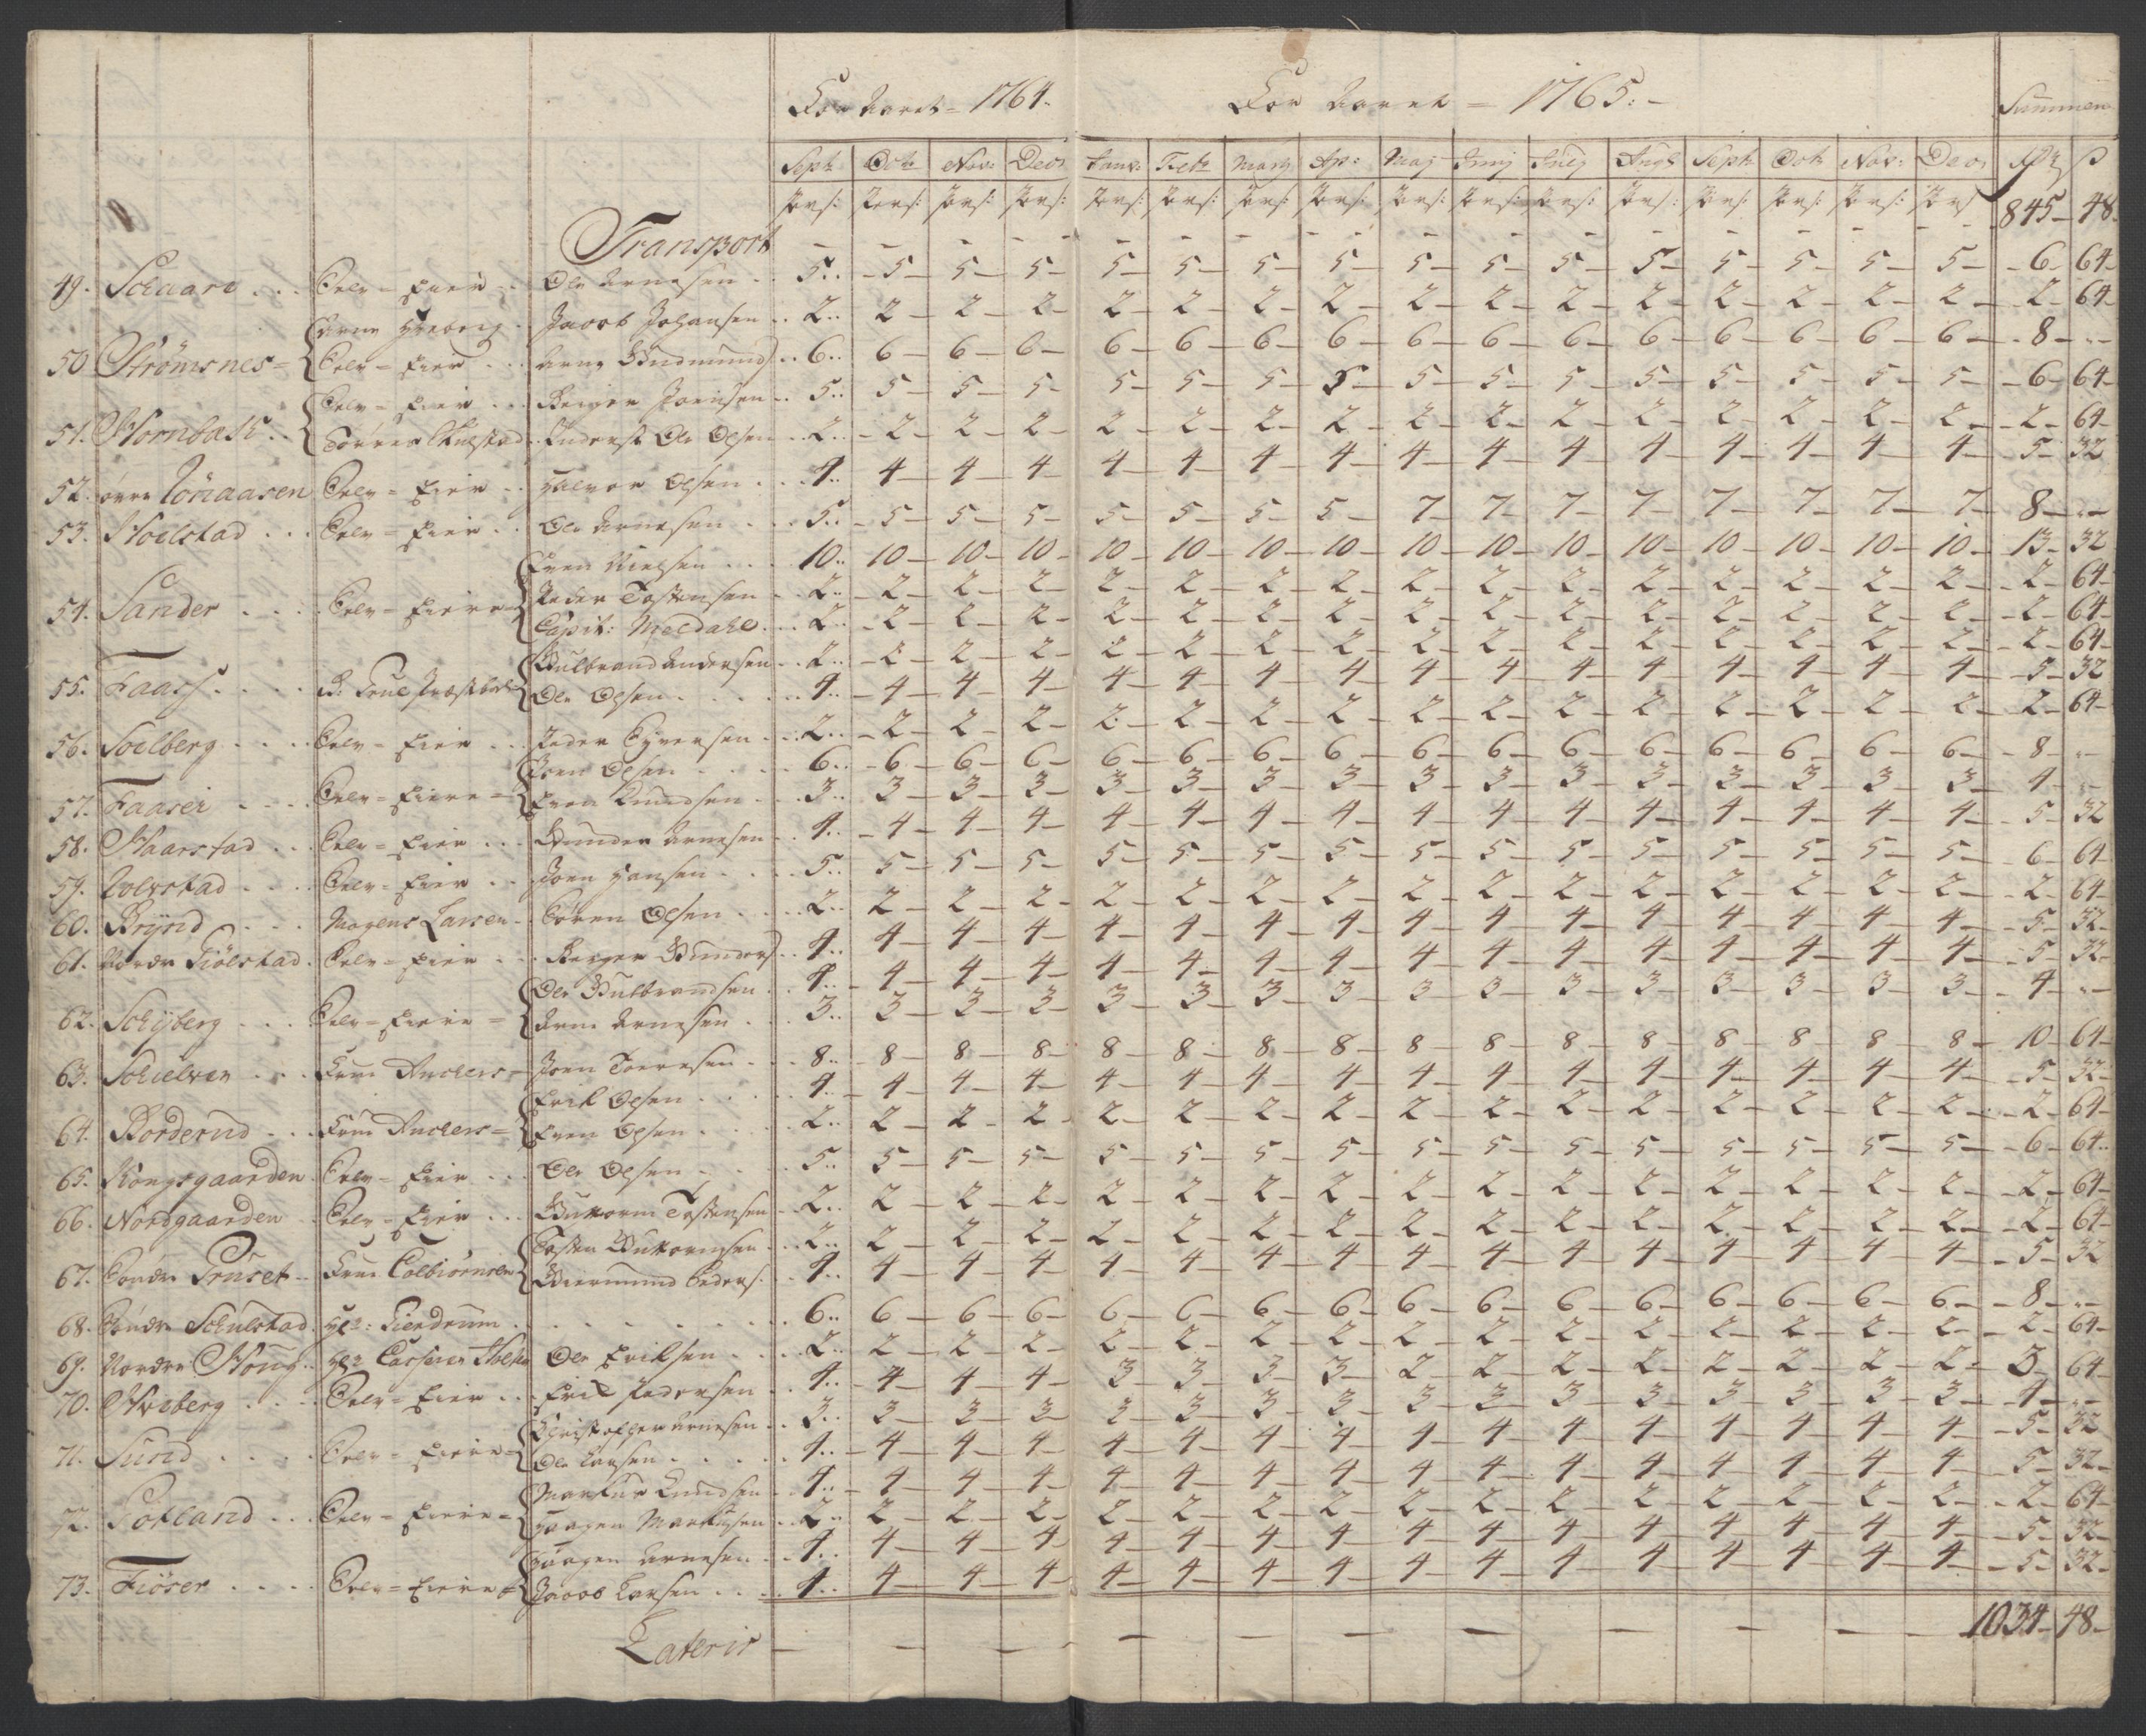 For Aaret = 1764. For Aaret = 1765: - Summen
Sept: Octr Nov: Decr Janv: Febr Marty Ap: Maj Junij Julij Augt Sept: Octr Nov: Decr Rdr ß
Pers: Pers: Pers: Pers: Pers: Pers: Pers: Pers: Pers: Pers: Pers: Pers: Pers: Pers: Pers: Pers:
Transport - - - - - - - - - - - - - - - - 845- 48-
49. Schaare Selv = Eier Ole Arnesen 5 5 5 5 5 5 5 5 5 5 5 5 5 5 5 5 6 64
Jacob Johansen 2 2 2 2 2 2 2 2 2 2 2 2 2 2 2 2 2 64
50 Strömsnes = Selv = Eier Arne Gudmunds 6 6 6 6 6 6 6 6 6 6 6 6 6 6 6 6 8 -
Selv = Eier Joensen 5 5 5 5 5 5 5 5 5 5 5 5 5 5 5 5 6 64
51. Ole Olsen 2 2 2 2 2 2 2 2 2 2 2 2 2 2 2 2 2 64
52. øvre Selv = Eier Halvor Olsen 4 4 4 4 4 4 4 4 4 4 4 4 4 4 4 4 5 32
53. Selv = Eier Ole Arnesen 5 5 5 5 5 5 5 5 7 7 7 7 7 7 7 7 8 -
Even Nielsen 10 10 10 10 10 10 10 10 10 10 10 10 10 10 10 10 13 32
54. Sander Selv = Eiere Peder Tostensen 2 2 2 2 2 2 2 2 2 2 2 2 2 2 2 2 2 64
Capit: Meldahl 2 2 2 2 2 2 2 2 2 2 2 2 2 2 2 2 2 64
Gulbrand Andersen 2 2 2 2 2 2 2 2 2 2 2 2 2 2 2 2 2 64
55. Faass Ole Olsen 4 4 4 4 4 4 4 4 4 4 4 4 4 4 4 4 5 32
56. Soelberg Selv = Eier Peder Syversen 2 2 2 2 2 2 2 2 2 2 2 2 2 2 2 2 2 64
Joen Olsen 6 6 6 6 6 6 6 6 6 6 6 6 6 6 6 6 8 -
57. Faaser Selv = Eiere = Even Knudsen 3 3 3 3 3 3 3 3 3 3 3 3 3 3 3 3 4 -
58. Haarstad Selv = Eier Gunder Arnesen 4 4 4 4 4 4 4 4 4 4 4 4 4 4 4 4 5 32
59. Selv = Eier Joen Hansen 5 5 5 5 5 5 5 5 5 5 5 5 5 5 5 5 6 64
60. Brynd Mogens Larsen Søren Olsen 2 2 2 2 2 2 2 2 2 2 2 2 2 2 2 2 2 64
61. Nordre Fiölstad Selv = Eier Gunders 4 4 4 4 4 4 4 4 4 4 4 4 4 4 4 4 5 32
Ole Gulbrandsen 4 4 4 4 4 4 4 4 4 4 4 4 4 4 4 4 5 32
62. Schyberg Selv = Eiere = Arne Arnesen 3 3 3 3 3 3 3 3 3 3 3 3 3 3 3 3 4 -
63. Schielver Anchers Joen Toeresen 8 8 8 8 8 8 8 8 8 8 8 8 8 8 8 8 10 64
Erik Olsen 4 4 4 4 4 4 4 4 4 4 4 4 4 4 4 4 5 32
64. Borderud Anchers = Even Olsen 2 2 2 2 2 2 2 2 2 2 2 2 2 2 2 2 2 64
65. Kongsgaarden Selv = Eier Ole Olsen 5 5 5 5 5 5 5 5 5 5 5 5 5 5 5 5 6 64
66. Nordgaarden Selv = Eier Guttorm Tostensen 2 2 2 2 2 2 2 2 2 2 2 2 2 2 2 2 2 64
Tosten Guttormsen 2 2 2 2 2 2 2 2 2 2 2 2 2 2 2 2 2 64
67. Søndre Colbiörnsen Giermund Peders: 4 4 4 4 4 4 4 4 4 4 4 4 4 4 4 4 5 32
68. Søndre Schulstad Hr: 6 6 6 6 6 6 6 6 6 6 6 6 6 6 6 6 8 -
69. Nordre Houg Ole Eriksen 2 2 2 2 2 2 2 2 2 2 2 2 2 2 2 2 2 64
70. Selv = Eier Erik Pedersen 4 4 4 4 3 3 3 3 2 2 2 2 2 2 2 2 3 64
Christopher Arnesen 3 3 3 3 3 3 3 3 3 3 3 3 3 3 3 3 4 -
71. Sund Selv = Eiere Ole Larsen 4 4 4 4 4 4 4 4 4 4 4 4 4 4 4 4 5 32
Markus Knudsen 4 4 4 4 4 4 4 4 4 4 4 4 4 4 4 4 5 32
72. Gotland Selv = Eiere = Haagen Markusen 2 2 2 2 2 2 2 2 2 2 2 2 2 2 2 2 2 64
Haagen Arnesen 4 4 4 4 4 4 4 4 4 4 4 4 4 4 4 4 5 32
73. Fiöser Selv = Eiere = Jacob Larsen 4 4 4 4 4 4 4 4 4 4 4 4 4 4 4 4 5 32
Lateris - - - - - - - - - - - 1034- 48-